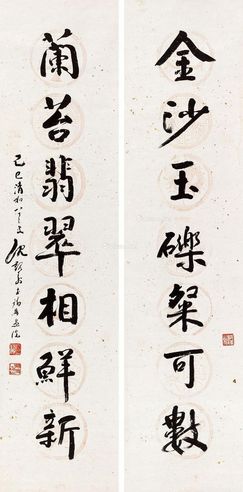 金沙玉礫粲可數
蘭苕翡翠相鮮新
己巳清和